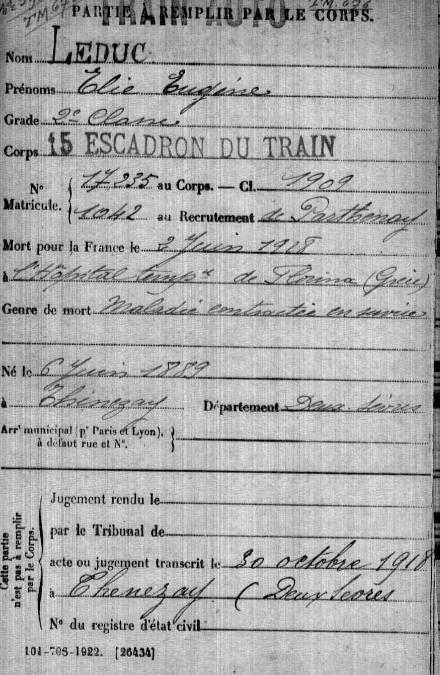 TRAIN AUTO
PARTIE A REMPLIR PAR LE CORPS.
Nom LEDUC
Prénoms Elie Eugène
Grade 2e Classe
Corps 15 ESCADRON DU TRAIN
No Matricule. { 17235 au Corps. — Cl. 1909
1042 au Recrutement de Parthenay
Mort pour la France le 2 Juin 1918
à l'Hôpital tempre de Florina (Grèce)
Genre de mort Maladie contractée en service
Né le 6 Juin 1889
à Thénezay Département Deux-Sèvres
Arrt municipal (pr Paris et Lyon), à défaut rue et No. }
Cette partie n'est pas à remplir par le Corps. {
Jugement rendu le
par le Tribunal de
acte ou jugement transcrit le 30 octobre 1918
à Thenezay (Deux Sevres
No du registre d'état civil
101-708-1922. [26434]